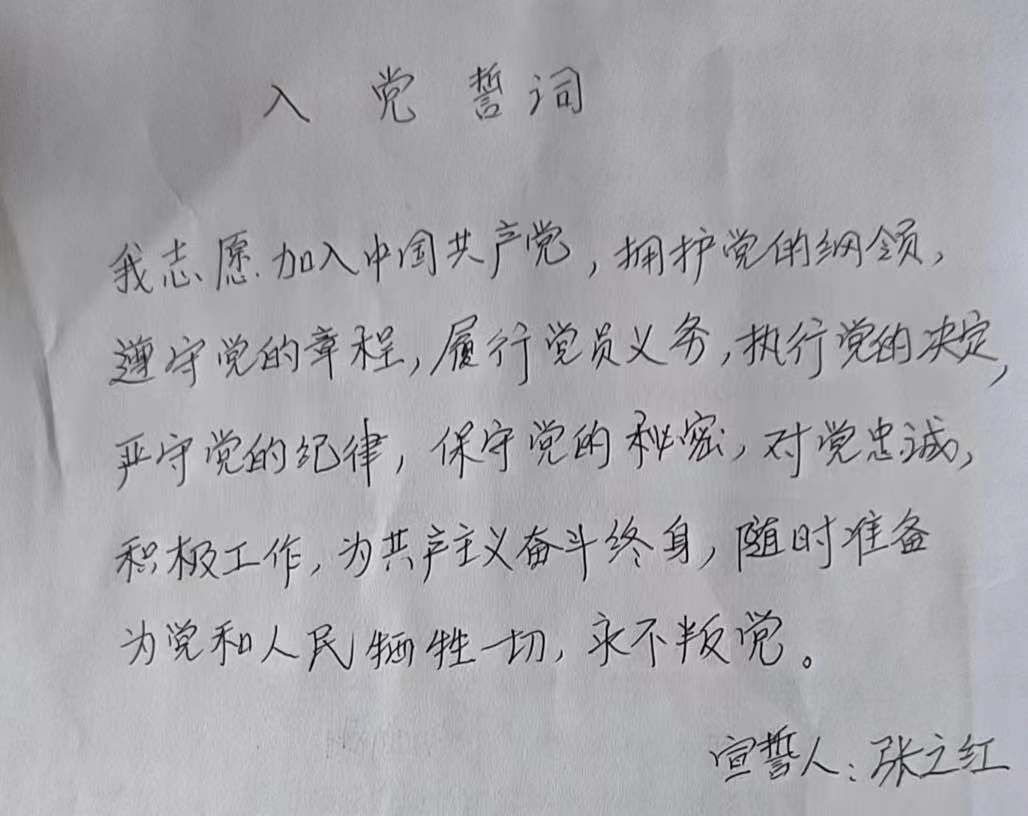 入党誓词
我志愿加入中国共产党，拥护党的纲领，
遵守党的章程，履行党员义务，执行党的决定，
严守党的纪律，保守党的秘密，对党忠诚，
积极工作，为共产主义奋斗终身，随时准备
为党和人民牺牲一切，永不叛党。
宣誓人：张之红